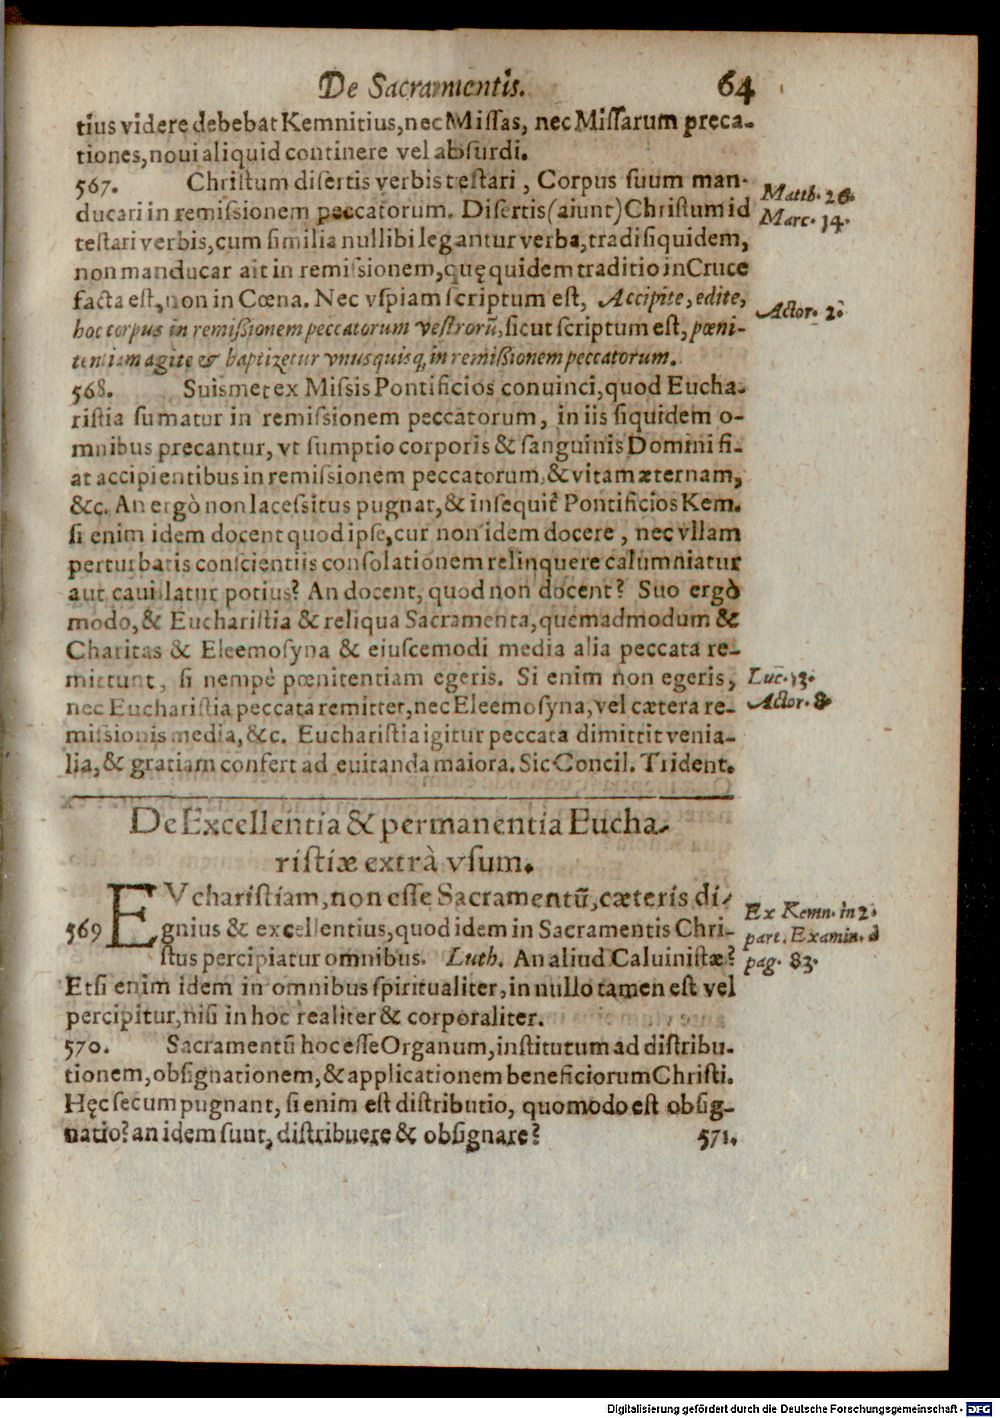 De Sacramentis. 64
tius videre debebat Kemnitius, nec Missas, nec Missarum preca-
tiones, noui aliquid continere vel absurdi.
567. Christum disertis verbis testari, Corpus suum man-
ducari in remissionem peccatorum. Disertis (aiunt) Christum id
testari verbis, cum similia nullibi legantur verba, tradi siquidem,
non manducar ait in remissionem, quę quidem traditio in Cruce
facta est, non in Cœna. Nec vspiam scriptum est, Accipite, edite,
hoc corpus in remissionem peccatorum vestrorũ, sicut scriptum est, pœni-
tentiam agite & baptizetur vnusquisq; in remissionem peccatorum.
Matth. 26.
Marc. 14.
Actor. 2.
568. Suismet ex Missis Pontificios conuinci, quod Eucha-
ristia sumatur in remissionem peccatorum, in iis siquidem o-
mnibus precantur, vt sumptio corporis & sanguinis Domini fi-
at accipientibus in remissionem peccatorum, & vitam æternam,
&c. An ergò non lacessitus pugnat, & insequit Pontificios Kem.
si enim idem docent quod ipse, cur non idem docere, nec vllam
perturbatis conscientiis consolationem relinquere calumniatur
aut cauillatur potius? An docent, quod non docent? Suo ergò
modo, & Eucharistia & reliqua Sacramenta, quemadmodum &
Charitas & Eleemosyna & eiuscemodi media alia peccata re-
mittunt, si nempè pœnitentiam egeris. Si enim non egeris,
nec Eucharistia peccata remittet, nec Eleemosyna, vel cætera re-
missionis media, &c. Eucharistia igitur peccata dimittit venia-
lia, & gratiam confert ad euitanda maiora. Sic Concil. Trident.
Luc. 13.
Actor. 8
De Excellentia & permanentia Eucha-
ristiæ extrà vsum.
569 EVcharistiam, non esse Sacramentũ, cæteris di-
gnius & excellentius, quod idem in Sacramentis Chri-
stus percipiatur omnibus. Luth. An aliud Caluinistæ?
Etsi enim idem in omnibus spiritualiter, in nullo tamen est vel
percipitur, nisi in hoc realiter & corporaliter.
Ex Kemn. in 2.
part. Examin.
pag. 83.
570. Sacramentũ hoc esse Organum, institutum ad distribu-
tionem, obsignationem, & applicationem beneficiorum Christi.
Hęc secum pugnant, si enim est distributio, quomodo est obsig-
natio? an idem sunt, distribuere & obsignare? 571.
Digitalisierung gefördert durch die Deutsche Forschungsgemeinschaft - DFG